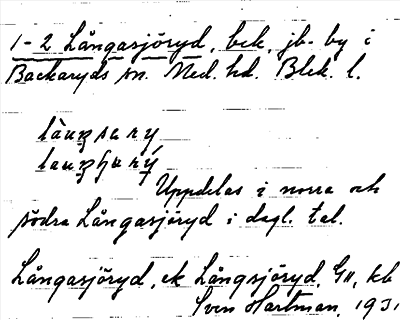 1-2 Långasjöryd, bek. jb- by i
Backaryds sn. Med. hd. Blek. l.
Uppdelas i norra och
södra Långasjöryd i dagl. tal.
Långasjöryd, ek Långsjöryd, G11, kb
Sven Hartman, 1931